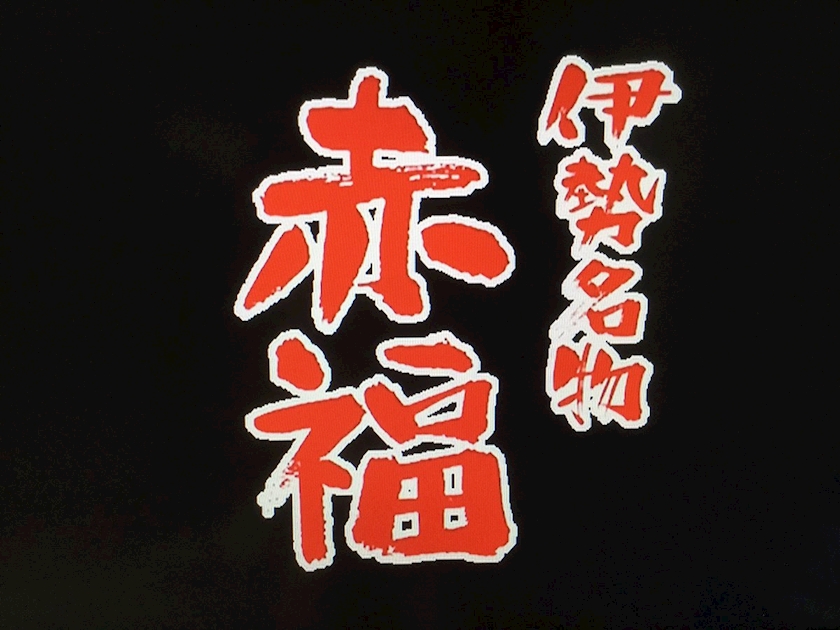 伊勢名物
赤福